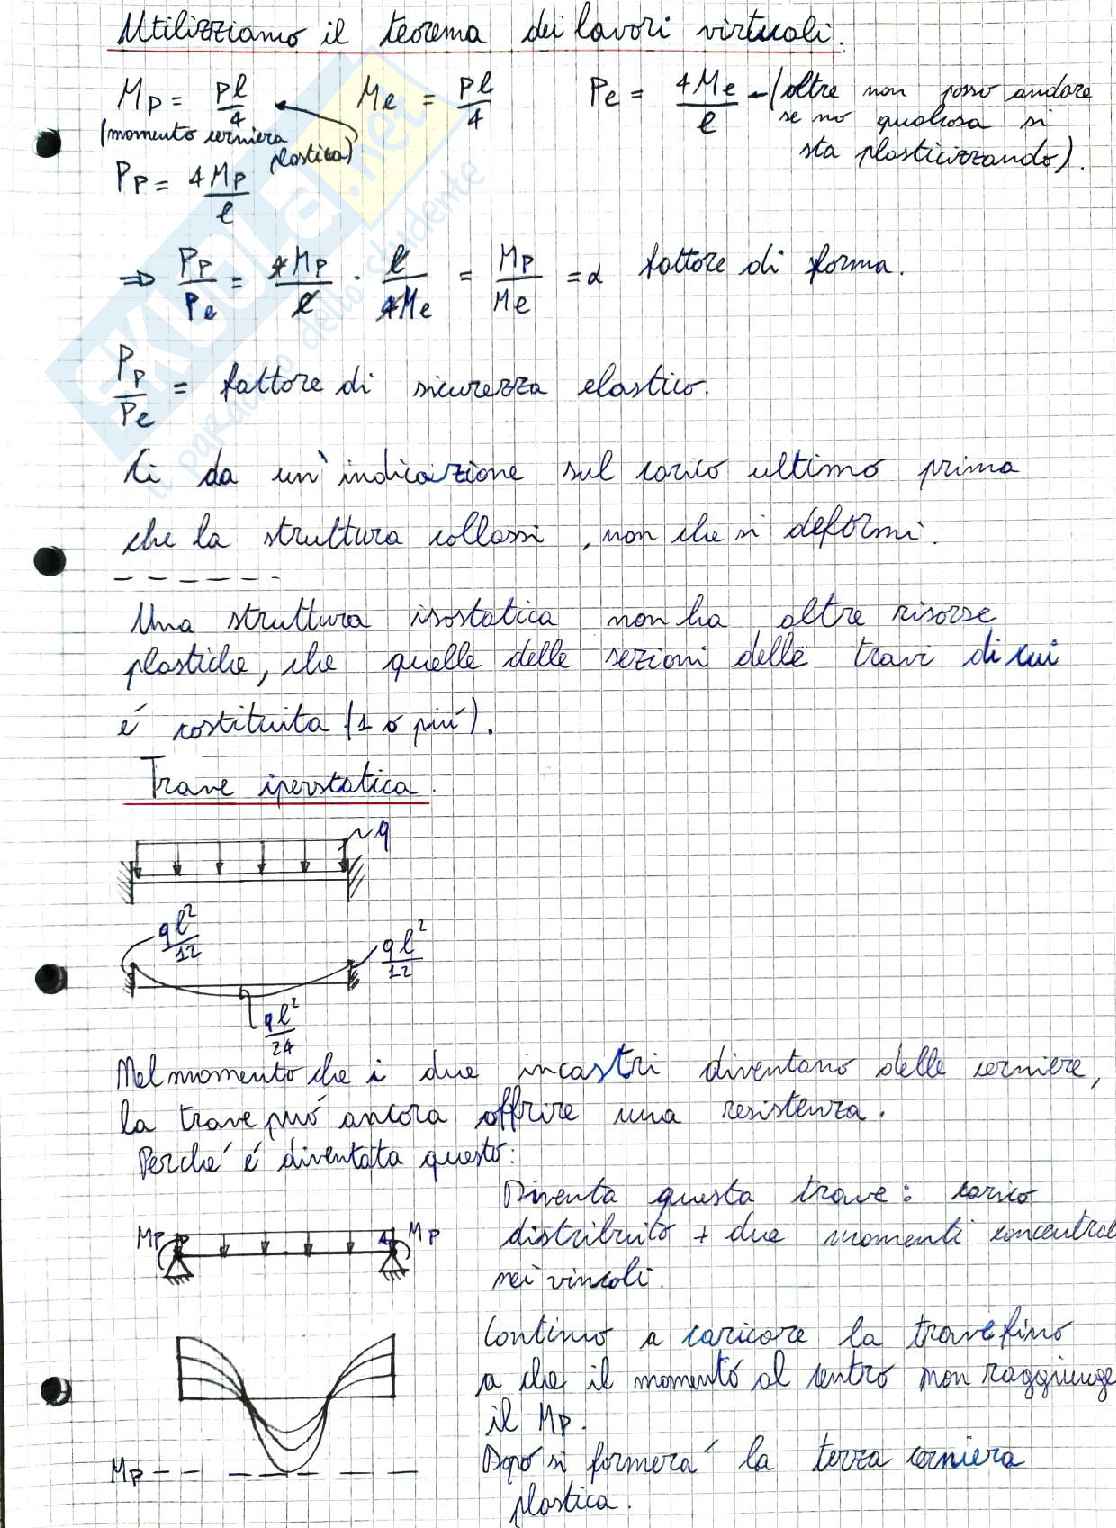 Utilizziamo il teorema dei lavori virtuali.
Mp = pl/4 Me = pl/4 Pe = 4Me/l (oltre non posso andare
(momento cerniera plastica) se no qualcosa si
Pp = 4Mp/l sta plasticizzando).
⇒ Pp/Pe = 4Mp/l · l/4Me = Mp/Me = α fattore di forma.
Pp/Pe = fattore di sicurezza elastico.
Ci da un'indicazione sul carico ultimo prima
che la struttura collassi, non che si deformi.
Una struttura isostatica non ha altre risorse
plastiche, che quelle delle sezioni delle travi di cui
é costituita (1 o piú).
Trave iperstatica.
q
ql²/12
ql²/12
ql²/24
Nel momento che i due incastri diventano delle cerniere,
la trave puó ancora offrire una resistenza.
Perché é diventata questo:
Diventa questa trave: carico
Mp Mp distribuito + due momenti concentrati
nei vincoli.
Continuo a caricare la trave fino
a che il momento al centro non raggiunge
il Mp.
Mp Dopo si formerá la terza cerniera
plastica.
SKUOLA.net
il paradiso dello studente